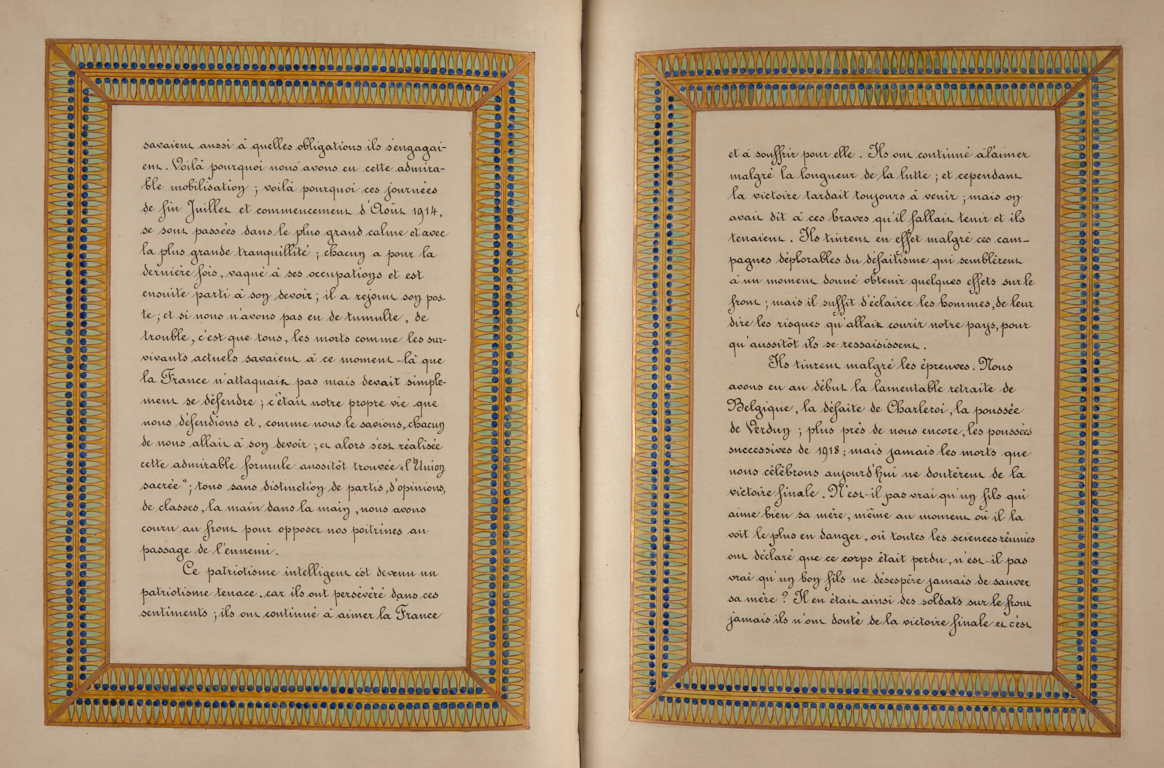 savaient aussi à quelles obligations ils s'engagai-
ent. Voilà pourquoi nous avons eu cette admira-
ble mobilisation ; voilà pourquoi ces journées
de fin Juillet et commencement d'Août 1914,
se sont passées dans le plus grand calme et avec
la plus grande tranquillité ; chacun a pour la
dernière fois, vaqué à ses occupations et est
ensuite parti à son devoir ; il a rejoint son pos-
te ; et si nous n'avons pas eu de tumulte, de
trouble, c'est que tous, les morts comme les sur-
vivants actuels savaient à ce moment-là que
la France n'attaquait pas mais devait simple-
ment se défendre ; c'était notre propre vie que
nous défendions et, comme nous le savions, chacun
de nous allait à son devoir ; et alors s'est réalisée
cette admirable formule aussitôt trouvée "l'Union
sacrée" ; tous sans distinction de partis, d'opinions,
de classes, la main dans la main, nous avons
couru au front pour opposer nos poitrines au
passage de l'ennemi.
Ce patriotisme intelligent est devenu un
patriotisme tenace, car ils ont persévéré dans ces
sentiments ; ils ont continué à aimer la France
et à souffrir pour elle. Ils ont continué à l'aimer
malgré la longueur de la lutte ; et cependant
la victoire tardait toujours à venir ; mais on
avait dit à ces braves qu'il fallait tenir et ils
tenaient. Ils tinrent en effet malgré ces cam-
pagnes déplorables du défaitisme qui semblèrent
à un moment donné obtenir quelques effets sur le
front ; mais il suffit d'éclairer les hommes, de leur
dire les risques qu'allait courir notre pays, pour
qu'aussitôt ils se ressaisissent.
Ils tinrent malgré les épreuves. Nous
avons eu au début la lamentable retraite de
Belgique, la défaite de Charleroi, la poussée
de Verdun ; plus près de nous encore, les poussées
successives de 1918 ; mais jamais les morts que
nous célébrons aujourd'hui ne doutèrent de la
victoire finale. N'est-il pas vrai qu'un fils qui
aime bien sa mère, même au moment où il la
voit le plus en danger, où toutes les sciences réunies
ont déclaré que ce corps était perdu, n'est-il pas
vrai qu'un bon fils ne désespère jamais de sauver
sa mère ? Il en était ainsi des soldats sur le front
jamais ils n'ont douté de la victoire finale et c'est